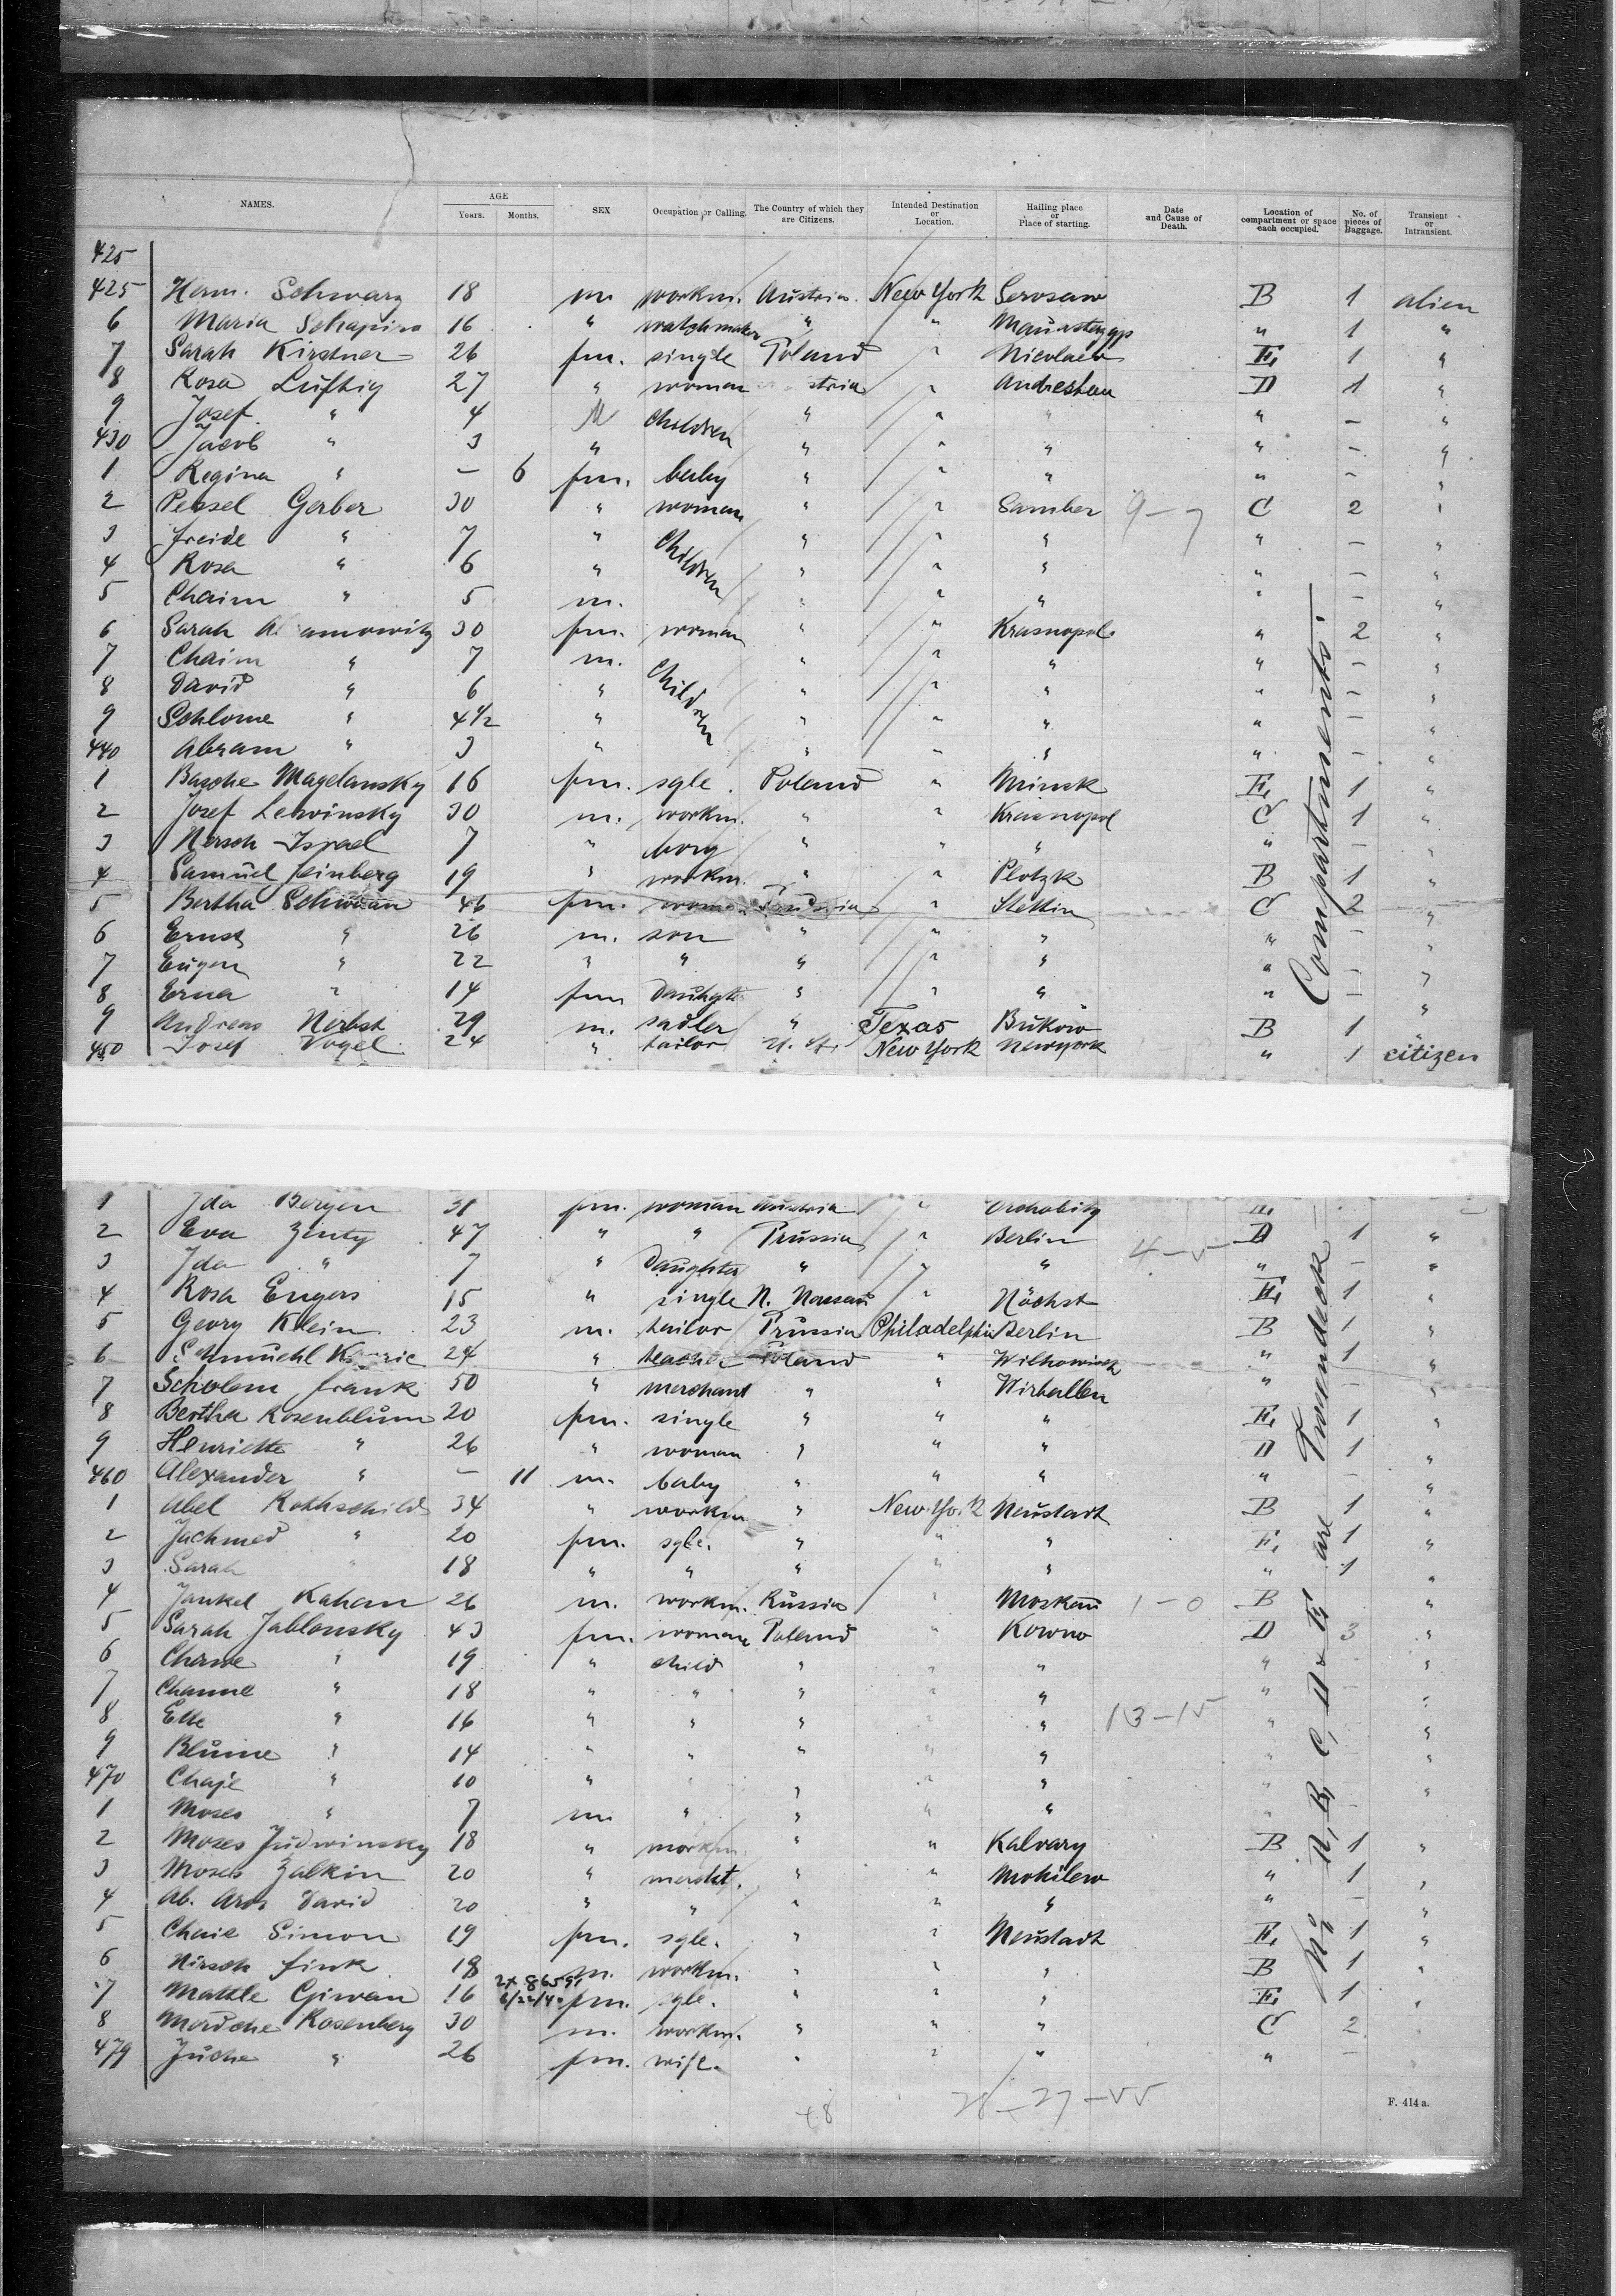 NAMES. AGE Years. Months. SEX Occupation or Calling. The Country of which they are Citizens. Intended Destination or Location. Hailing place or Place of starting. Date and Cause of Death. Location of compartment or space each occupied. No. of pieces of Baggage. Transient or Intransient.
425
425 Herm. Schwarz 18 m workm. Austria. New York Serosaw B 1 alien
6 Maria Schapiro 16 " watchmaker " " " 1 "
7 Sarah Kirstner 26 fm. single Poland " Nicolaew E, 1 "
8 Rosa Luftig 27 " woman stria " D 1 "
9 Josef " 4 M children " " " " – "
430 Jacob " 3 " " " " " – "
1 Regina " – 6 fm. baby " " " " – "
2 Pessel Gerber 30 " woman " " Samber 9–7 C 2 "
3 freide " 7 " children " " " " – "
4 Rosa " 6 " " " " " – "
5 Chaim " 5 m. " " " " – "
6 Sarah A amowitz 30 fm. woman " " Krasnopol. " 2 "
7 Chaim " 7 m. children " " " " – "
8 David " 6 " " " " " – "
9 Schlome " 4 1/2 " " " " " – "
440 Abram " 3 " " " " " – "
1 Basche Magelansky 16 fm. sgle. Poland " Minsk E, 1 "
2 Josef Lewinsky 30 m. workm. " " Krasnopol C 1 "
3 Hersch Israel 7 " boy " " " " – "
4 Samuel feinberg 19 " workm. " " Plotzk B 1 "
5 Bertha Schwan 46 fm. woman " Stettin C 2 "
6 Ernst " 26 m. son " " " " – "
7 Eugen " 22 " " " " " " – "
8 Erna " 14 fm " " " " – "
9 Andreas Herbst 29 m. sadler " Texas Bukow B 1 "
450 Josef Vogel 24 " tailor U. St. New York New york " 1 citizen
1 Ida Bergen 31 fm. woman Austria "
2 Eva Zinty 47 " " Prussia " Berlin 4–5 D 1 "
3 Ida " 7 " Daughter " " " " – "
4 Rosa Engers 15 " single N. Nassau " Höchst E, 1 "
5 Georg Klein 23 m. tailor Prussia Philadelphia Berlin B 1 "
6 Schmuehl 24 " Poland " " 1 "
7 Scholem frank 50 " merchant " " Wirballen " – "
8 Bertha Rosenblum 20 fm. single " " " E, 1 "
9 Henriette " 26 " woman " " " D 1 "
460 Alexander " – 11 m. baby " " " " – "
1 Abel Rothschild 34 " workm " New York Neustadt B 1 "
2 Jachmed " 20 fm. sgle. " " " E, 1 "
3 Sarah " 18 " " " " " " 1 "
4 Jankel Kahan 26 m. workm. Russia " Moskau 1–0 B "
5 Sarah Jablonsky 43 fm. woman Poland " Kowno D 3 "
6 Chawe " 19 " child " " " " "
7 Channe " 18 " " " " " " – "
8 Elle " 16 " " " " " 13–15 " "
9 Blume " 14 " " " " " " "
470 Chaje " 10 " " " " " " "
1 Moses " 7 m " " " " " –
2 Moses Judwinsky 18 " workm " " Kalvary B 1 "
3 Moses Zalkin 20 " mercht. " " Mohilew " 1 "
4 Ab. Aron David 20 " " " " " " – "
5 Chaie Simon 19 fm. sgle. " " Neustadt E, 1 "
6 Hirsch fink 18 m. workm. " " " B 1 "
7 Mattle Girwan 16 2x 86591 6/22/40 fm. sgle. " " " E, 1 "
8 Mordche Rosenberg 30 m. workm. " " " C 2
479 Juche " 26 fm. wife. " " " " –
Compartments:
A, B, C, D & E are Tweendeck
48 28–27–55
F. 414 a.